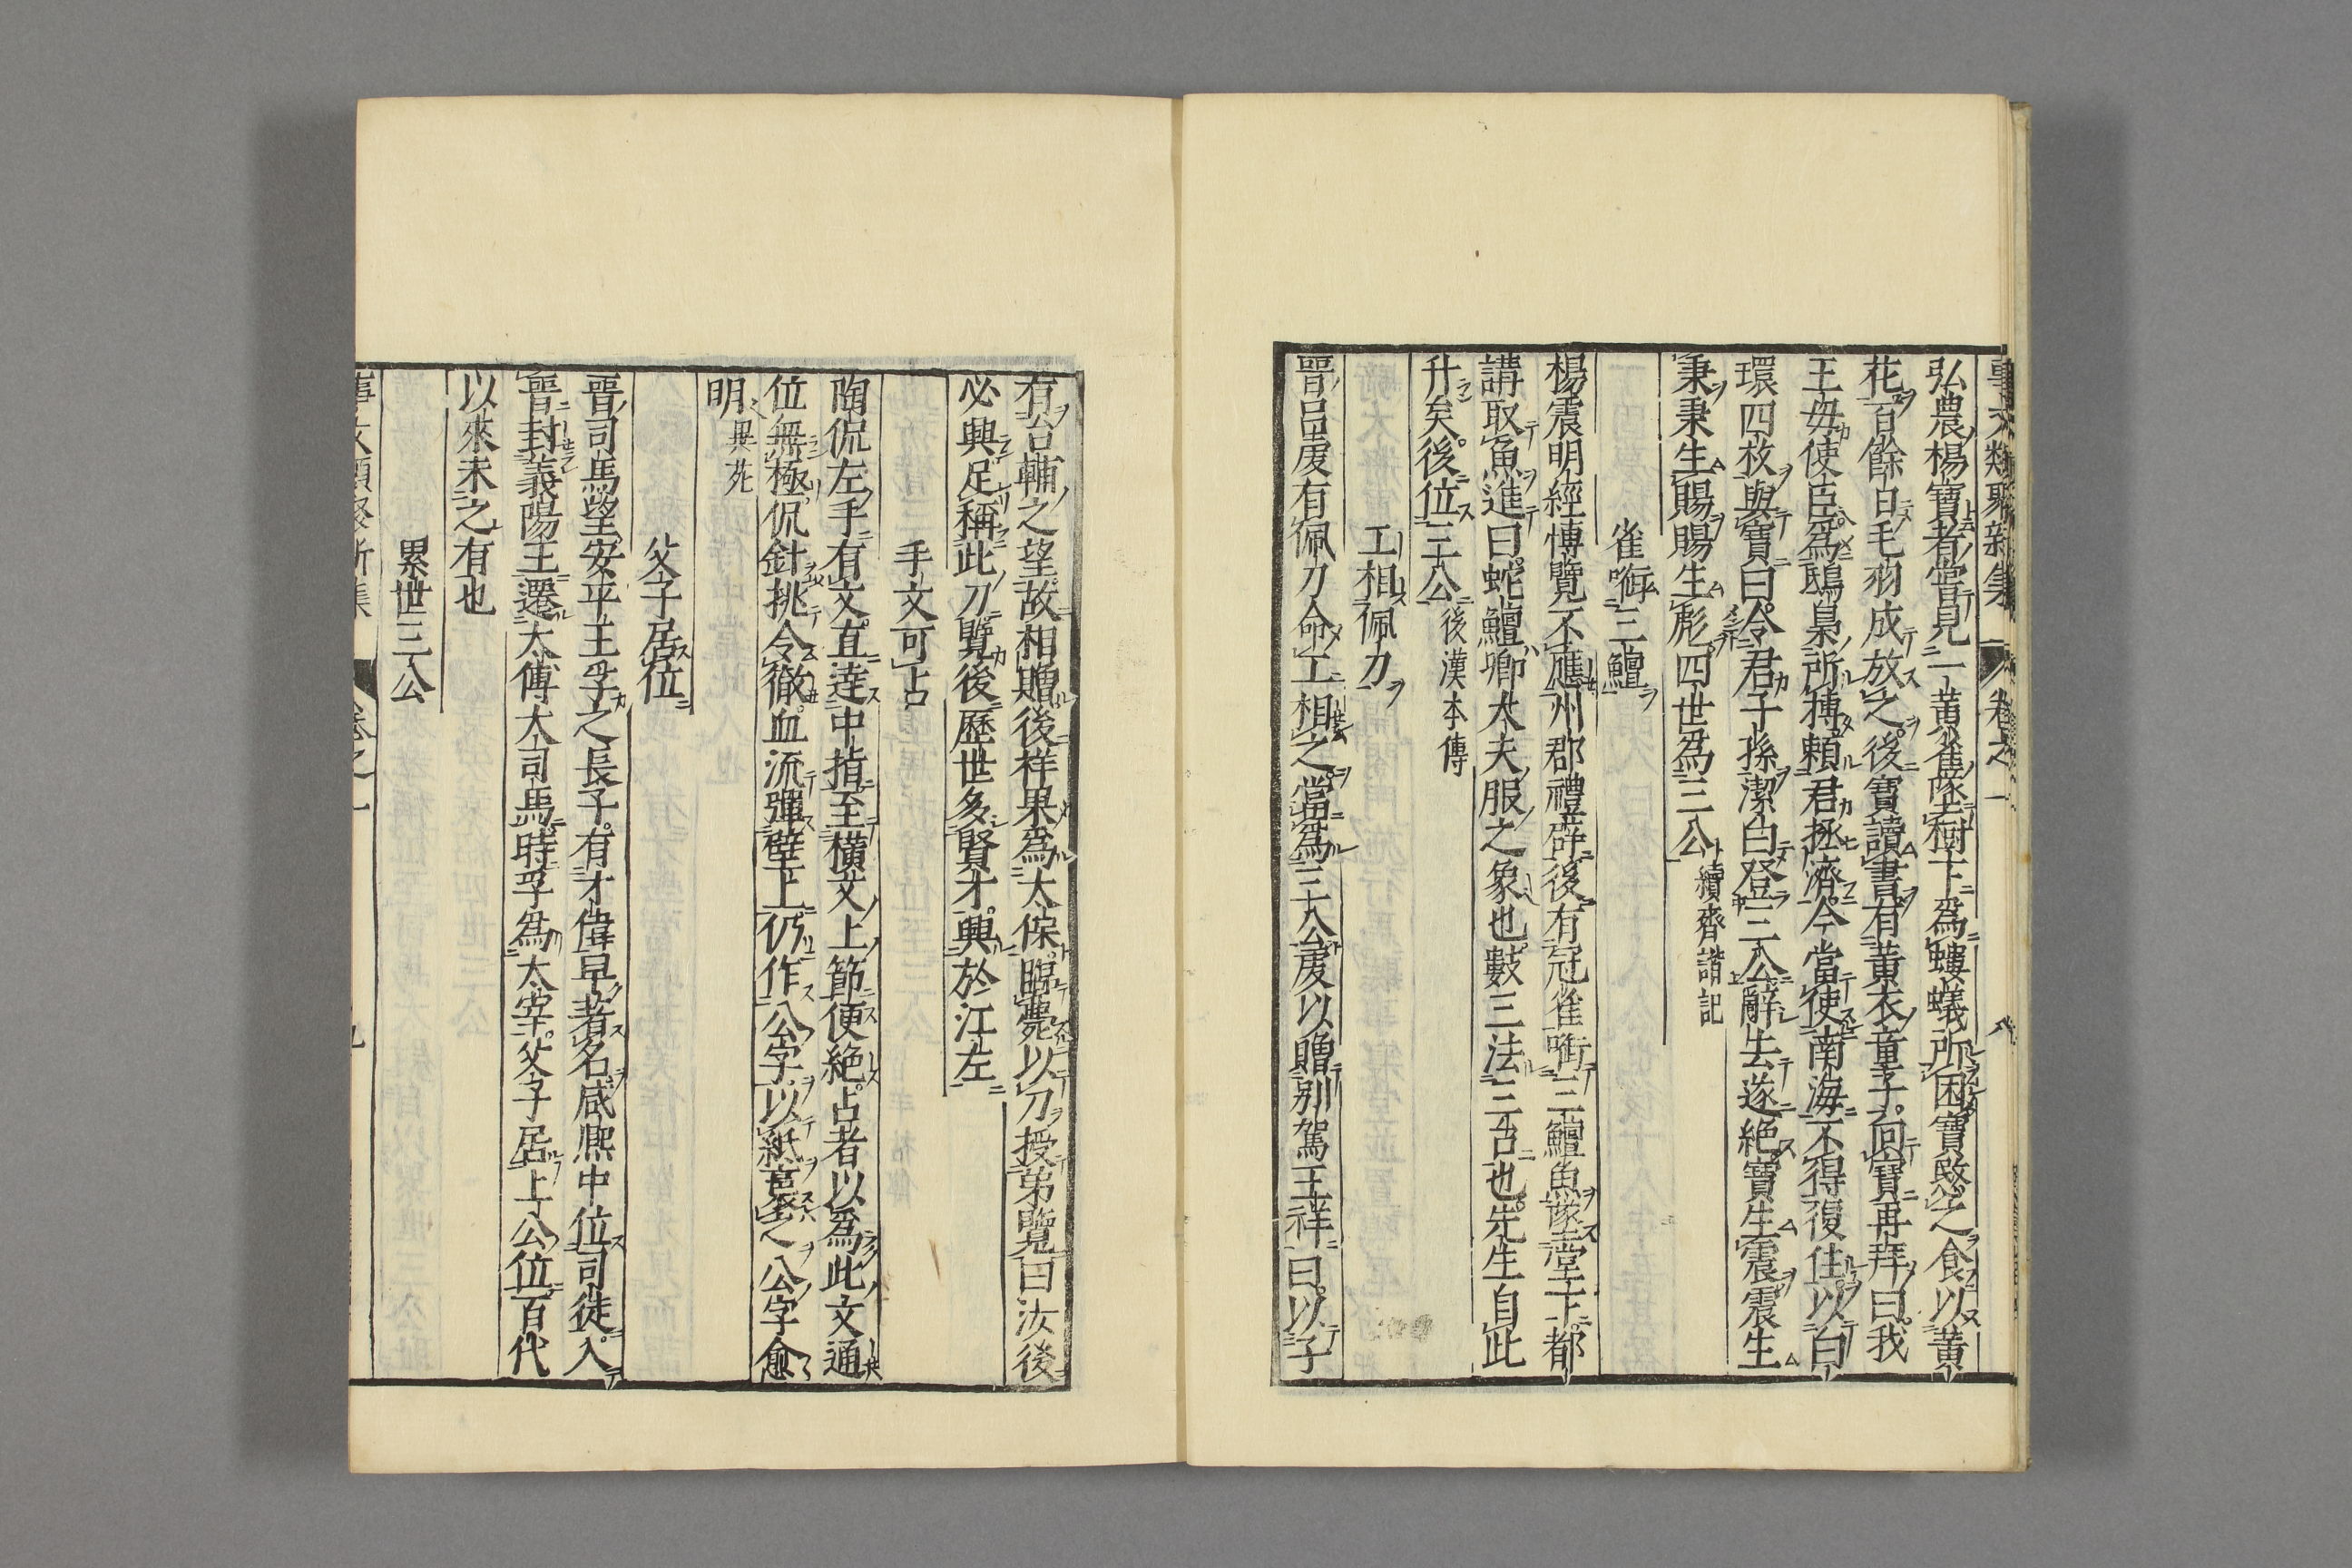 事文類聚新集 卷之一
弘農楊寶者當見一黃雀墜樹下爲螻蟻所困寶愍之食以黃
花百餘日毛羽成放之後寶讀書有黃衣童子向寶再拜曰我
王母使臣爲鴟梟所搏賴君拯濟今當使南海不得復住以白
環四枚與寶曰令君子孫潔白登三公辭去遂絶寶生震震生
秉秉生賜賜生彪四世爲三公 續齊諧記
雀啣三鱣
楊震明經愽覽不應州郡禮辟後有冠雀啣三鱣魚墜堂下都
講取魚進曰蛇鱣卿大夫服之象也數三法三台也先生自此
升矣後位三公 後漢本傳
工相佩刀
晉呂虔有佩刀命工相之當爲三公虔以贈别駕王祥曰以子
有台輔之望故相贈後祥果爲太保臨薨以刀授弟覽曰汝後
必興足稱此刀覽後歷世多賢才興於江左
手文可占
陶侃左手有文直達中指至橫文上節便絶占者以爲此文通
位無極侃針挑令徹血流彈壁上仍作公字以紙裹之公字愈
明 異苑
父子居位
晉司馬望安平王孚之長子有才偉早著名咸熙中位司徒入
晉封義陽王遷太傅大司馬時孚爲太宰父子居上公位百代
以來未之有也
累世三公
事文類聚新集 卷之一 九